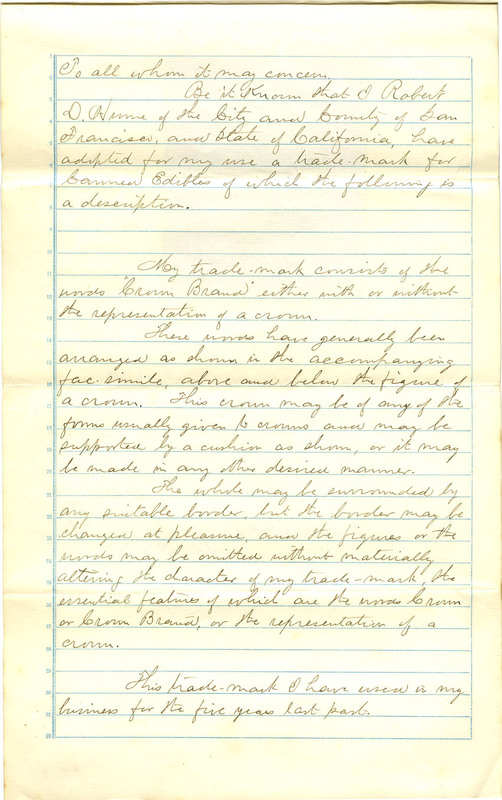 To all whom it may concern.
Be it Known that I Robert
D. Hume of the City and County of San
Francisco, and State of California, have
adopted for my use a trade-mark for
Canned Edibles of which the following is
a description.
My trade-mark consists of the
words "Crown Brand" either with or without
the representation of a crown.
These words have generally been
arranged as shown in the accompanying
fac-simile, above and below the figure of
a crown. This crown may be of any of the
forms usually given to crowns and may be
supported by a cushion as shown, or it may
be made in any other desired manner.
The whole may be surrounded by
any suitable border, but the border may be
changed at pleasure, and the figures or the
words may be omitted without materially
altering the character of my trade-mark, the
essential features of which are the words Crown
or Crown Brand, or the representation of a
crown.
This trade-mark I have used in my
business for the five years last past.